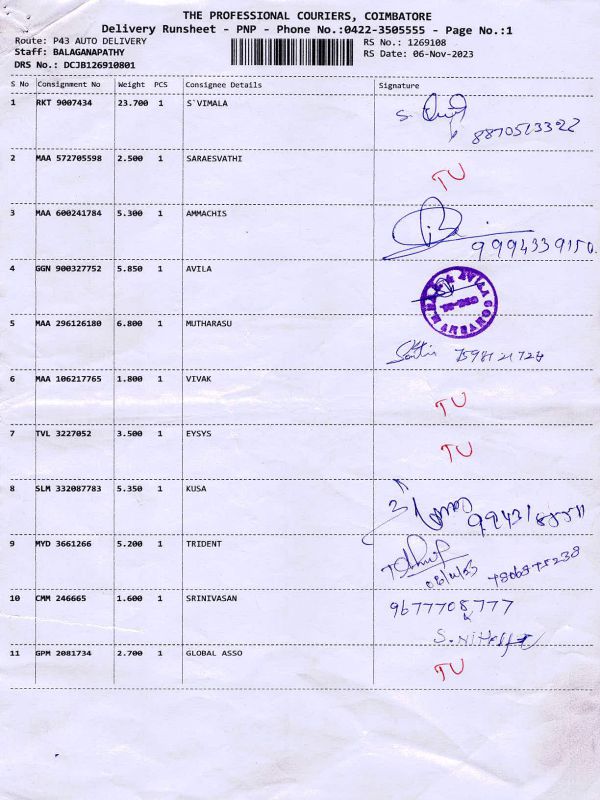 THE PROFESSIONAL COURIERS, COIMBATORE
Delivery Runsheet - PNP - Phone No.:0422-3505555 - Page No.:1
Route: P43 AUTO DELIVERY RS No.: 1269108
Staff: BALAGANAPATHY RS Date: 06-Nov-2023
DRS No.: DCJB126910801
S No Consignment No Weight PCS Consignee Details Signature
1 RKT 9007434 23.700 1 S`VIMALA S.
8870523392
2 MAA 572705598 2.500 1 SARAESVATHI TU
3 MAA 600241784 5.300 1 AMMACHIS
9994339150.
4 GGN 900327752 5.850 1 AVILA
5 MAA 296126180 6.800 1 MUTHARASU
6 MAA 106217765 1.800 1 VIVAK TU
7 TVL 3227052 3.500 1 EYSYS TU
8 SLM 332087783 5.350 1 KUSA
9 MYD 3661266 5.200 1 TRIDENT
10 CMM 246665 1.600 1 SRINIVASAN 9677708777
11 GPM 2081734 2.700 1 GLOBAL ASSO TU